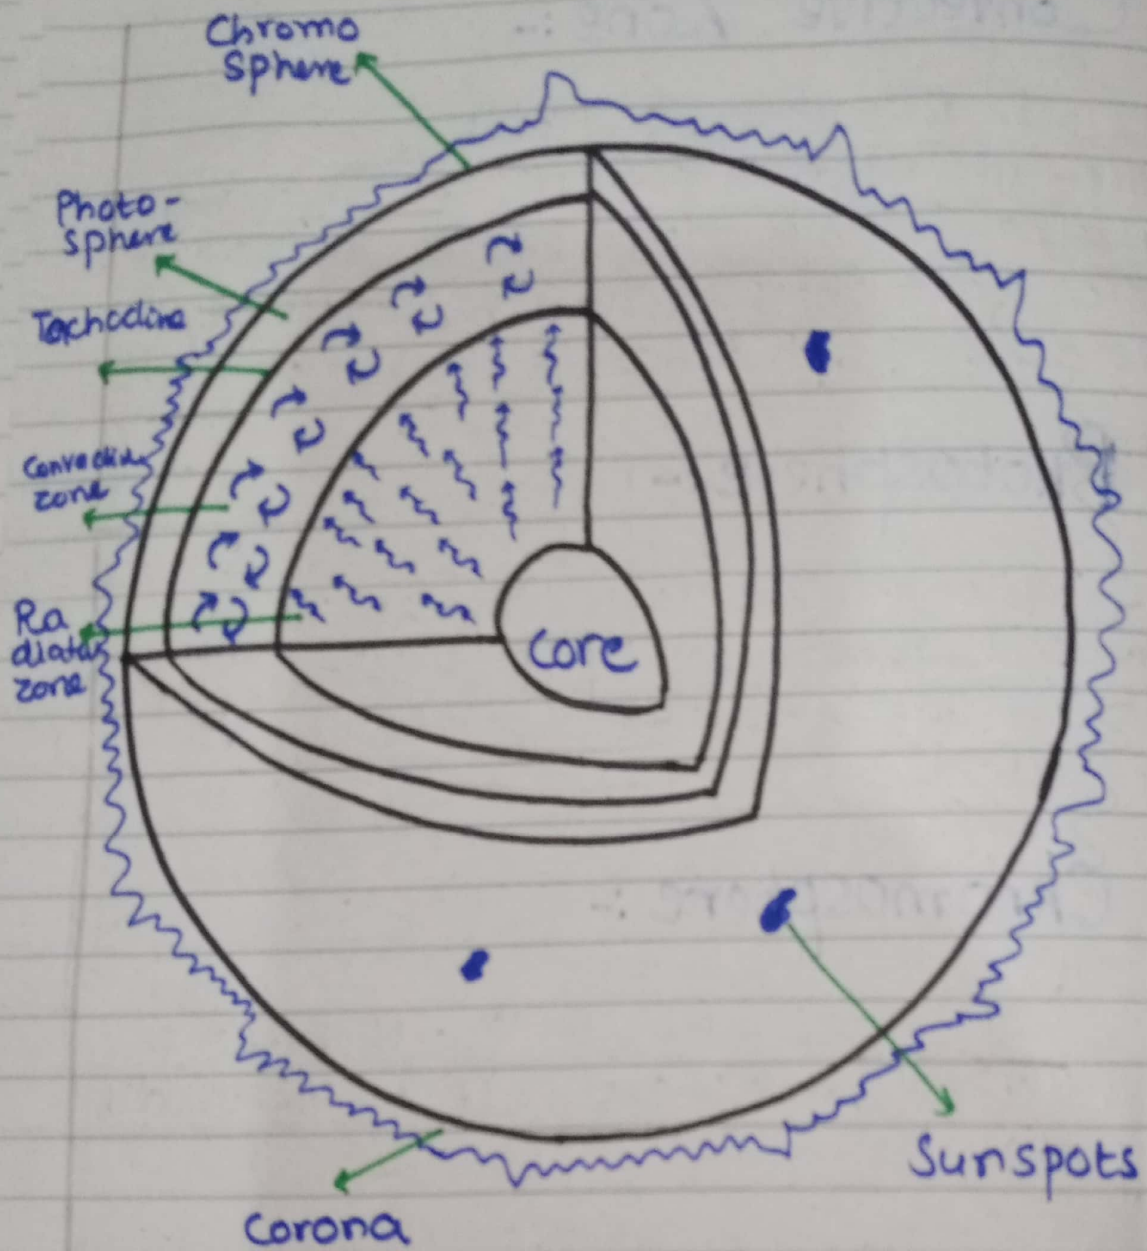 Chromo
Sphere
Photo-
sphere
Tachocline
Convective
zone
Ra
diatav
zone
core
Sunspots
Corona